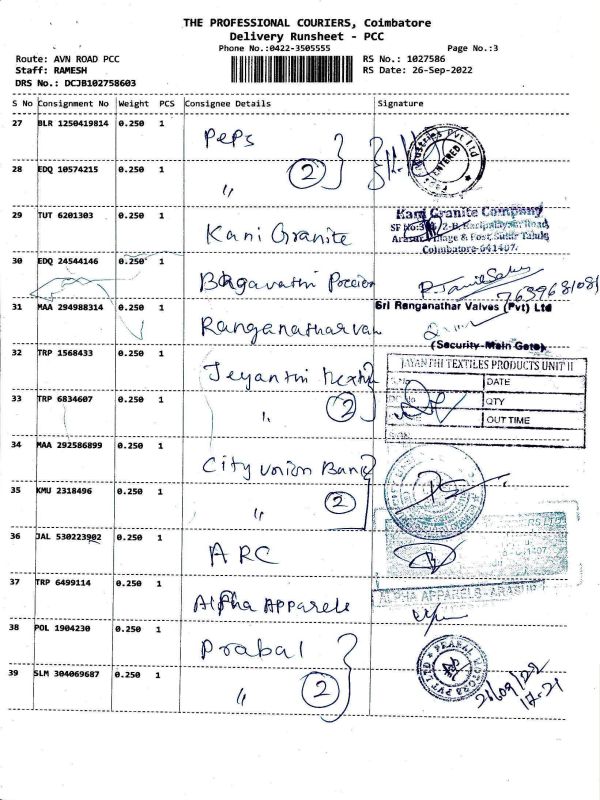 THE PROFESSIONAL COURIERS, Coimbatore
Delivery Runsheet - PCC
Phone No.:0422-3505555
Page No.:3
Route: AVN ROAD PCC
RS No.: 1027586
Staff: RAMESH
RS Date: 26-Sep-2022
DRS No.: DCJB102758603
S No Consignment No Weight PCS Consignee Details Signature
27 BLR 1250419814 0.250 1 Peps
28 EDQ 10574215 0.250 1 〃 2
ENTERED
29 TUT 6201303 0.250 1 Kani Granite
Kani Granite Company
Coimbatore-641407.
30 EDQ 24544146 0.250 1 Bhagavathi
7639681081
31 MAA 294988314 0.250 1 Ranganathar
Sri Ranganathar Valves (Pvt) Ltd
(Security-Main Gate)
32 TRP 1568433 0.250 1 Jeyanthi
33 TRP 6834607 0.250 1 〃 2
JAYANTHI TEXTILES PRODUCTS UNIT II
DATE
QTY
OUT TIME
34 MAA 292586899 0.250 1 City Union Bank
35 KMU 2318496 0.250 1 〃 2
36 JAL 530223902 0.250 1 ARC
37 TRP 6499114 0.250 1 Alpha Apparels
ALPHA APPARELS - ARASUR
38 POL 1904230 0.250 1 Prabal
39 SLM 304069687 0.250 1 〃 2
PRABAL MOTORS PVT LTD